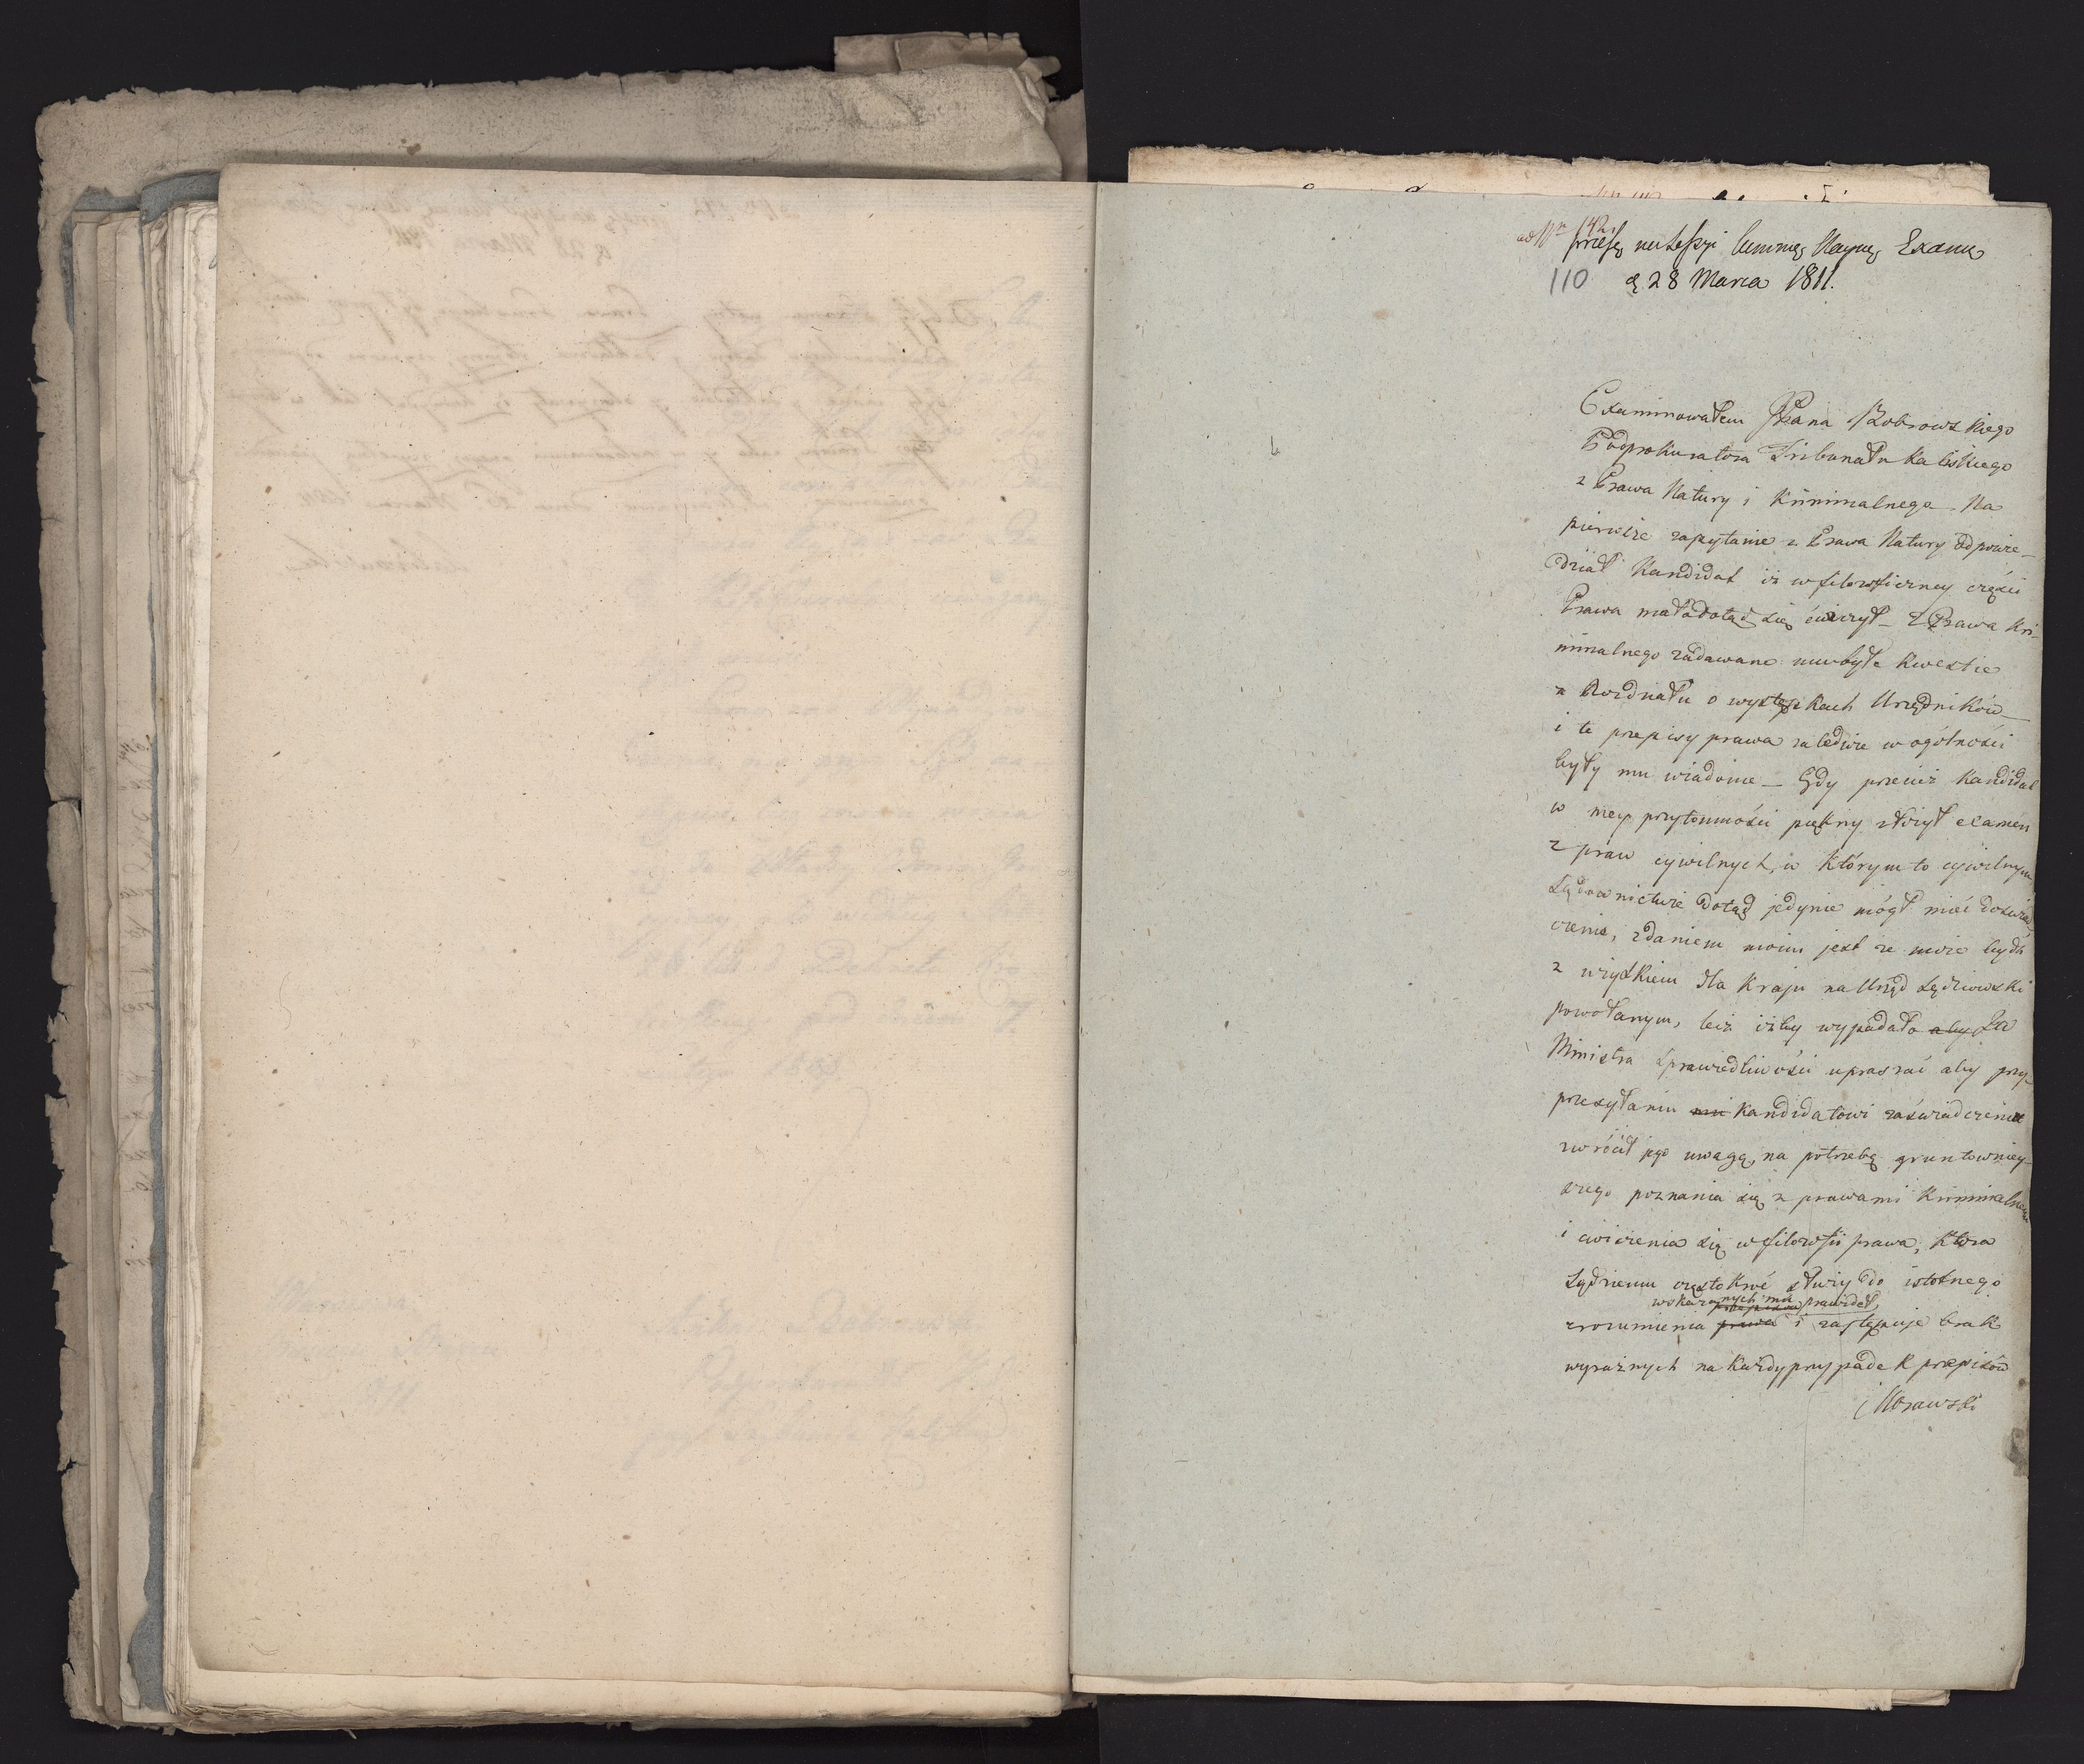 ad Nr 142.
przeszę na Sessyi Summię Nayw. Exam.
110 d. 28 Marca 1811.
Examinowałem Pana Bobrowskiego
Podprokuratora Tribunału Kaliskiego
z Prawa Natury i Kriminalnego. Na
pierwsze zapytanie z Prawa Natury odpowie-
dział Kandidat iż w filozoficzney części
Prawa mało dotąd się ćwiczył – Z Prawa Kri-
minalnego zadawane mu były kwestie
z Rozdziału o występkach Urzędników –
i te przepisy prawa zaledwie w ogólności
były mu wiadome – Gdy przecież Kandidat
w mey przytomności piękny złożył examen
z praw cywilnych, w którym to cywilnym
Sądownictwie dotąd jedynie mógł mieć doświad-
czenie, zdaniem moim jest że może bydź
z użytkiem dla Kraju na Urząd Sędziowski
powołanym, leiz iżby wypadało aby Za
Ministra Sprawiedliwości upraszać aby przy
przesyłaniu mu Kandidatowi zaświadczenia
zwrócił jego uwagę na potrzebę gruntowniey-
szego poznania się z prawami Kriminalnemi
i ćwiczenia się w filozofii prawa, która
Sędziemu częstokroć służy do istotnego
wskazanych mu przepisów prawideł
zrozumienia prawa i zastępuje brak
wyraźnych na każdy przypadek przepisów
Morawski